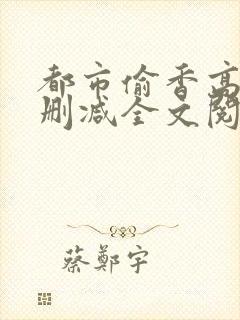 都市偷香高
删减全文阅
蔡鄭宇